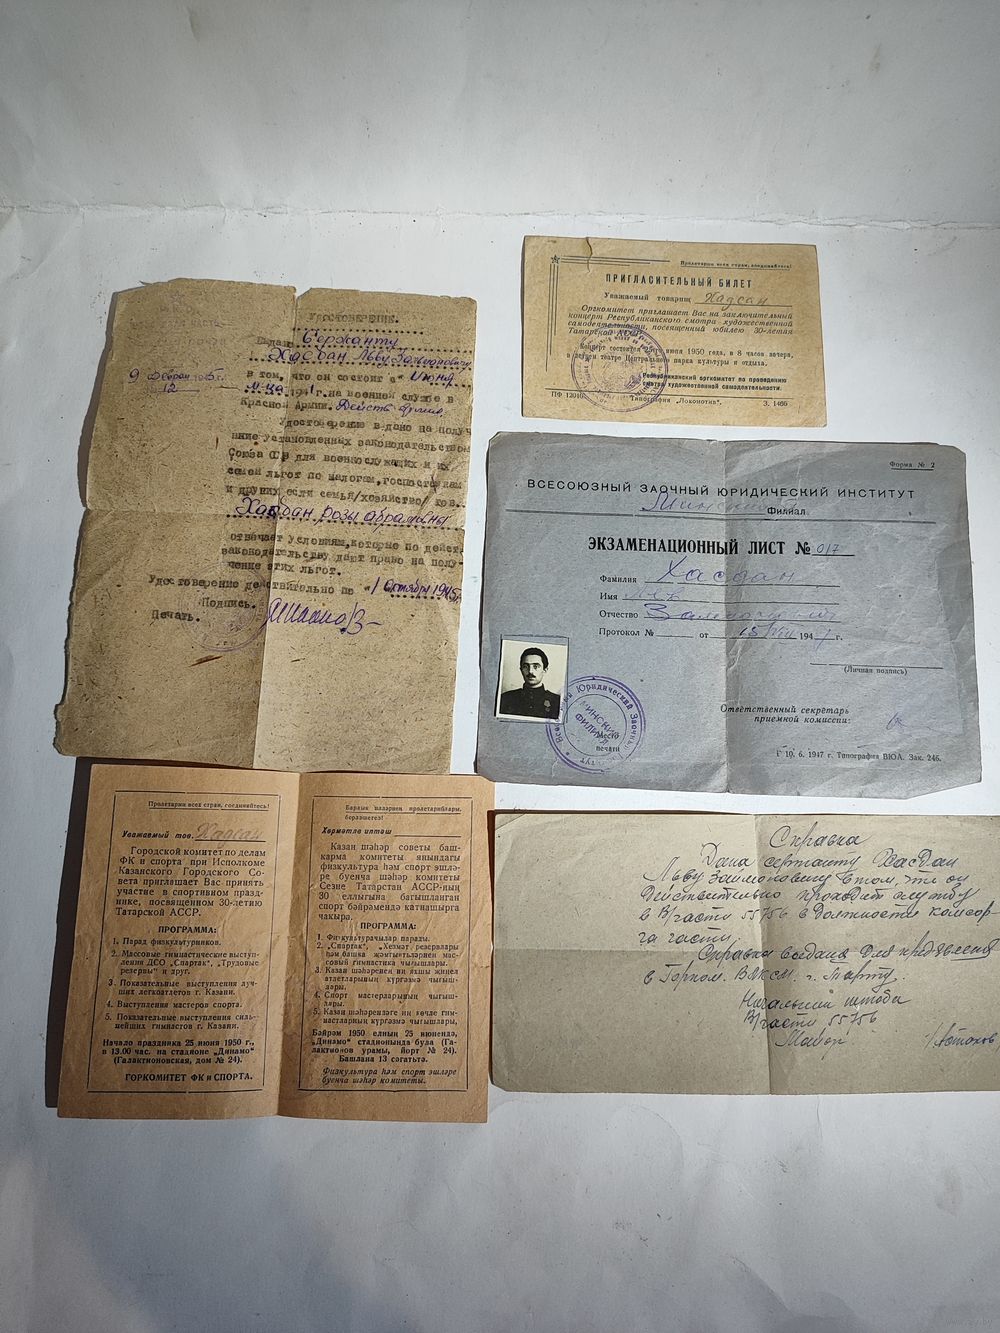 УДОСТОВЕРЕНИЕ.
Выдано Сержанту
Хасдан Льву Залмановичу
в том, что он состоит с "Июня
м-ца 1941 г. на военной службе в
Красной Армии. Действ. армия
Удостоверение выдано на получ
ение установленных законодательством
Союза ССР для военнослужащих и их
семей льгот по налогам, госпоставкам
и других если семья/хозяйство/ тов.
Хасдан Розы Абрамовны
отвечает условиям, которые по дейст.
законодательству дают право на полу-
чение этих льгот.
Удостоверение действительно по "1 Октября 1945г.
Подпись.
Печать.
9 февраля 1945 г.
12
Пролетарии всех стран, соединяйтесь!
ПРИГЛАСИТЕЛЬНЫЙ БИЛЕТ
Уважаемый товарищ Хадсан
Оргкомитет приглашает Вас на заключительный
концерт Республиканского смотра художественной
самодеятельности, посвященный юбилею 30-летия
Татарской АССР.
Концерт состоится июня 1950 года, в 8 часов вечера,
в летнем театре Центрального парка культуры и отдыха.
Республиканский оргкомитет по проведению
смотра художественной самодеятельности.
ПФ Типография „Локомотив". З. 1466
Форма № 2
ВСЕСОЮЗНЫЙ ЗАОЧНЫЙ ЮРИДИЧЕСКИЙ ИНСТИТУТ
Минский Филиал
ЭКЗАМЕНАЦИОННЫЙ ЛИСТ № 017
Фамилия Хасдан
Имя Лев
Отчество Залманович
Протокол № от 15/VIII 1947 г.
(Личная подпись)
Ответственный секретарь
приемной комиссии:
Место
печати
Юридический Заочный
МИНСКИЙ
ФИЛИАЛ
Г 10. 6. 1947 г. Типография ВЮА. Зак. 246.
Пролетарии всех стран, соединяйтесь!
Уважаемый тов. Хадсан
Городской комитет по делам
ФК и спорта при Исполкоме
Казанского Городского Со-
вета приглашает Вас принять
участие в спортивном празд-
нике, посвященном 30-летию
Татарской АССР.
ПРОГРАММА:
1. Парад физкультурников.
2. Массовые гимнастические выступ-
ления ДСО „Спартак", „Трудовые
резервы" и друг.
3. Показательные выступления луч-
ших легкоатлетов г. Казани.
4. Выступления мастеров спорта.
5. Показательные выступления силь-
нейших гимнастов г. Казани.
Начало праздника 25 июня 1950 г.,
в 13.00 час. на стадионе „Динамо"
(Галактионовская, дом № 24).
ГОРКОМИТЕТ ФК и СПОРТА.
Барлык илләрнең пролетарийлары,
берләшегез!
Хөрмәтле иптәш
Казан шәһәр советы баш-
карма комитеты янындагы
физкультура һәм спорт эшлә-
ре буенча шәһәр комитеты
Сезне Татарстан АССР-ның
30 еллыгына багышланган
спорт бәйрәмендә катнашырга
чакыра.
ПРОГРАММА:
1. Физкультурачылар парады.
2. „Спартак", „Хезмәт резервлары
һәм башка җәмгыятьләрнең мас-
совый гимнастика чыгышлары.
3. Казан шәһәренең иң яхшы җиңел
атлетларының күргәзмә чыгыш-
лары.
4. Спорт мастерларының чыгыш-
лары.
5. Казан шәһәрендәге иң көчле гим-
настларның күргәзмә чыгышлары.
Бәйрәм 1950 елның 25 июнендә,
„Динамо" стадионында була (Га-
лактионов урамы, йорт № 24).
Башлана 13 сәгатьтә.
Физкультура һәм спорт эшләре
буенча шәһәр комитеты.
Справка
Дана сержанту Хасдан
Льву Залмановичу в том, что он
действительно проходит службу
в В/части 55756 в должности комсор-
га части.
Справка выдана для предъявления
в Горком. ВЛКСМ. г. Тарту.
Начальник штаба
В/части 55756
Майор